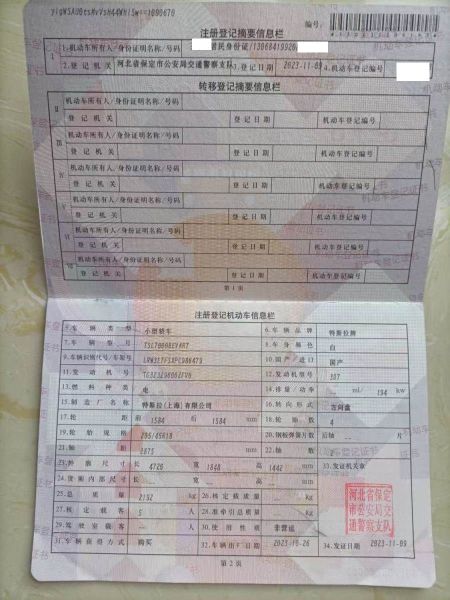 注册登记摘要信息栏
编号:
1.机动车所有人/身份证明名称/号码 居民身份证/13068419920
2.登记机关 河北省保定市公安局交通警察支队 3.登记日期 2023-11-09 4.机动车登记编号
转移登记摘要信息栏
机动车所有人/身份证明名称/号码
登记机关 登记日期 机动车登记编号
机动车所有人/身份证明名称/号码
登记机关 登记日期 机动车登记编号
机动车所有人/身份证明名称/号码
登记机关 登记日期 机动车登记编号
机动车所有人/身份证明名称/号码
登记机关 登记日期 机动车登记编号
机动车所有人/身份证明名称/号码
登记机关 登记日期 机动车登记编号
机动车所有人/身份证明名称/号码
登记机关 登记日期 机动车登记编号
第1页
注册登记机动车信息栏
5.车辆类型 小型轿车 6.车辆品牌 特斯拉牌
7.车辆型号 8.车身颜色 白
9.车辆识别代号/车架号 10.国产/进口 国产
11.发动机号 12.发动机型号 3D7
13.燃料种类 电 14.排量/功率 ml/ 194 kw
15.制造厂名称 特斯拉(上海)有限公司 16.转向形式 方向盘
17.轮距 前 1584 后 1584 mm 18.轮胎数 4
19.轮胎规格 235/45R18 20.钢板弹簧片数 后轴 片
21.轴距 2875 mm 22.轴数 2
23.外廓尺寸 长 4720 宽 1848 高 1442 mm 33.发证机关章
24.货厢内部尺寸 长 宽 高 mm
25.总质量 kg 26.核定载质量 kg
27.核定载客 5 人 28.准牵引总质量 kg
29.驾驶室载客 人 30.使用性质 非营运
31.车辆获得方式 购买 32.车辆出厂日期 2023-10-26 34.发证日期 2023-11-09
河北省保定
市公安局交
通警察支队
第2页